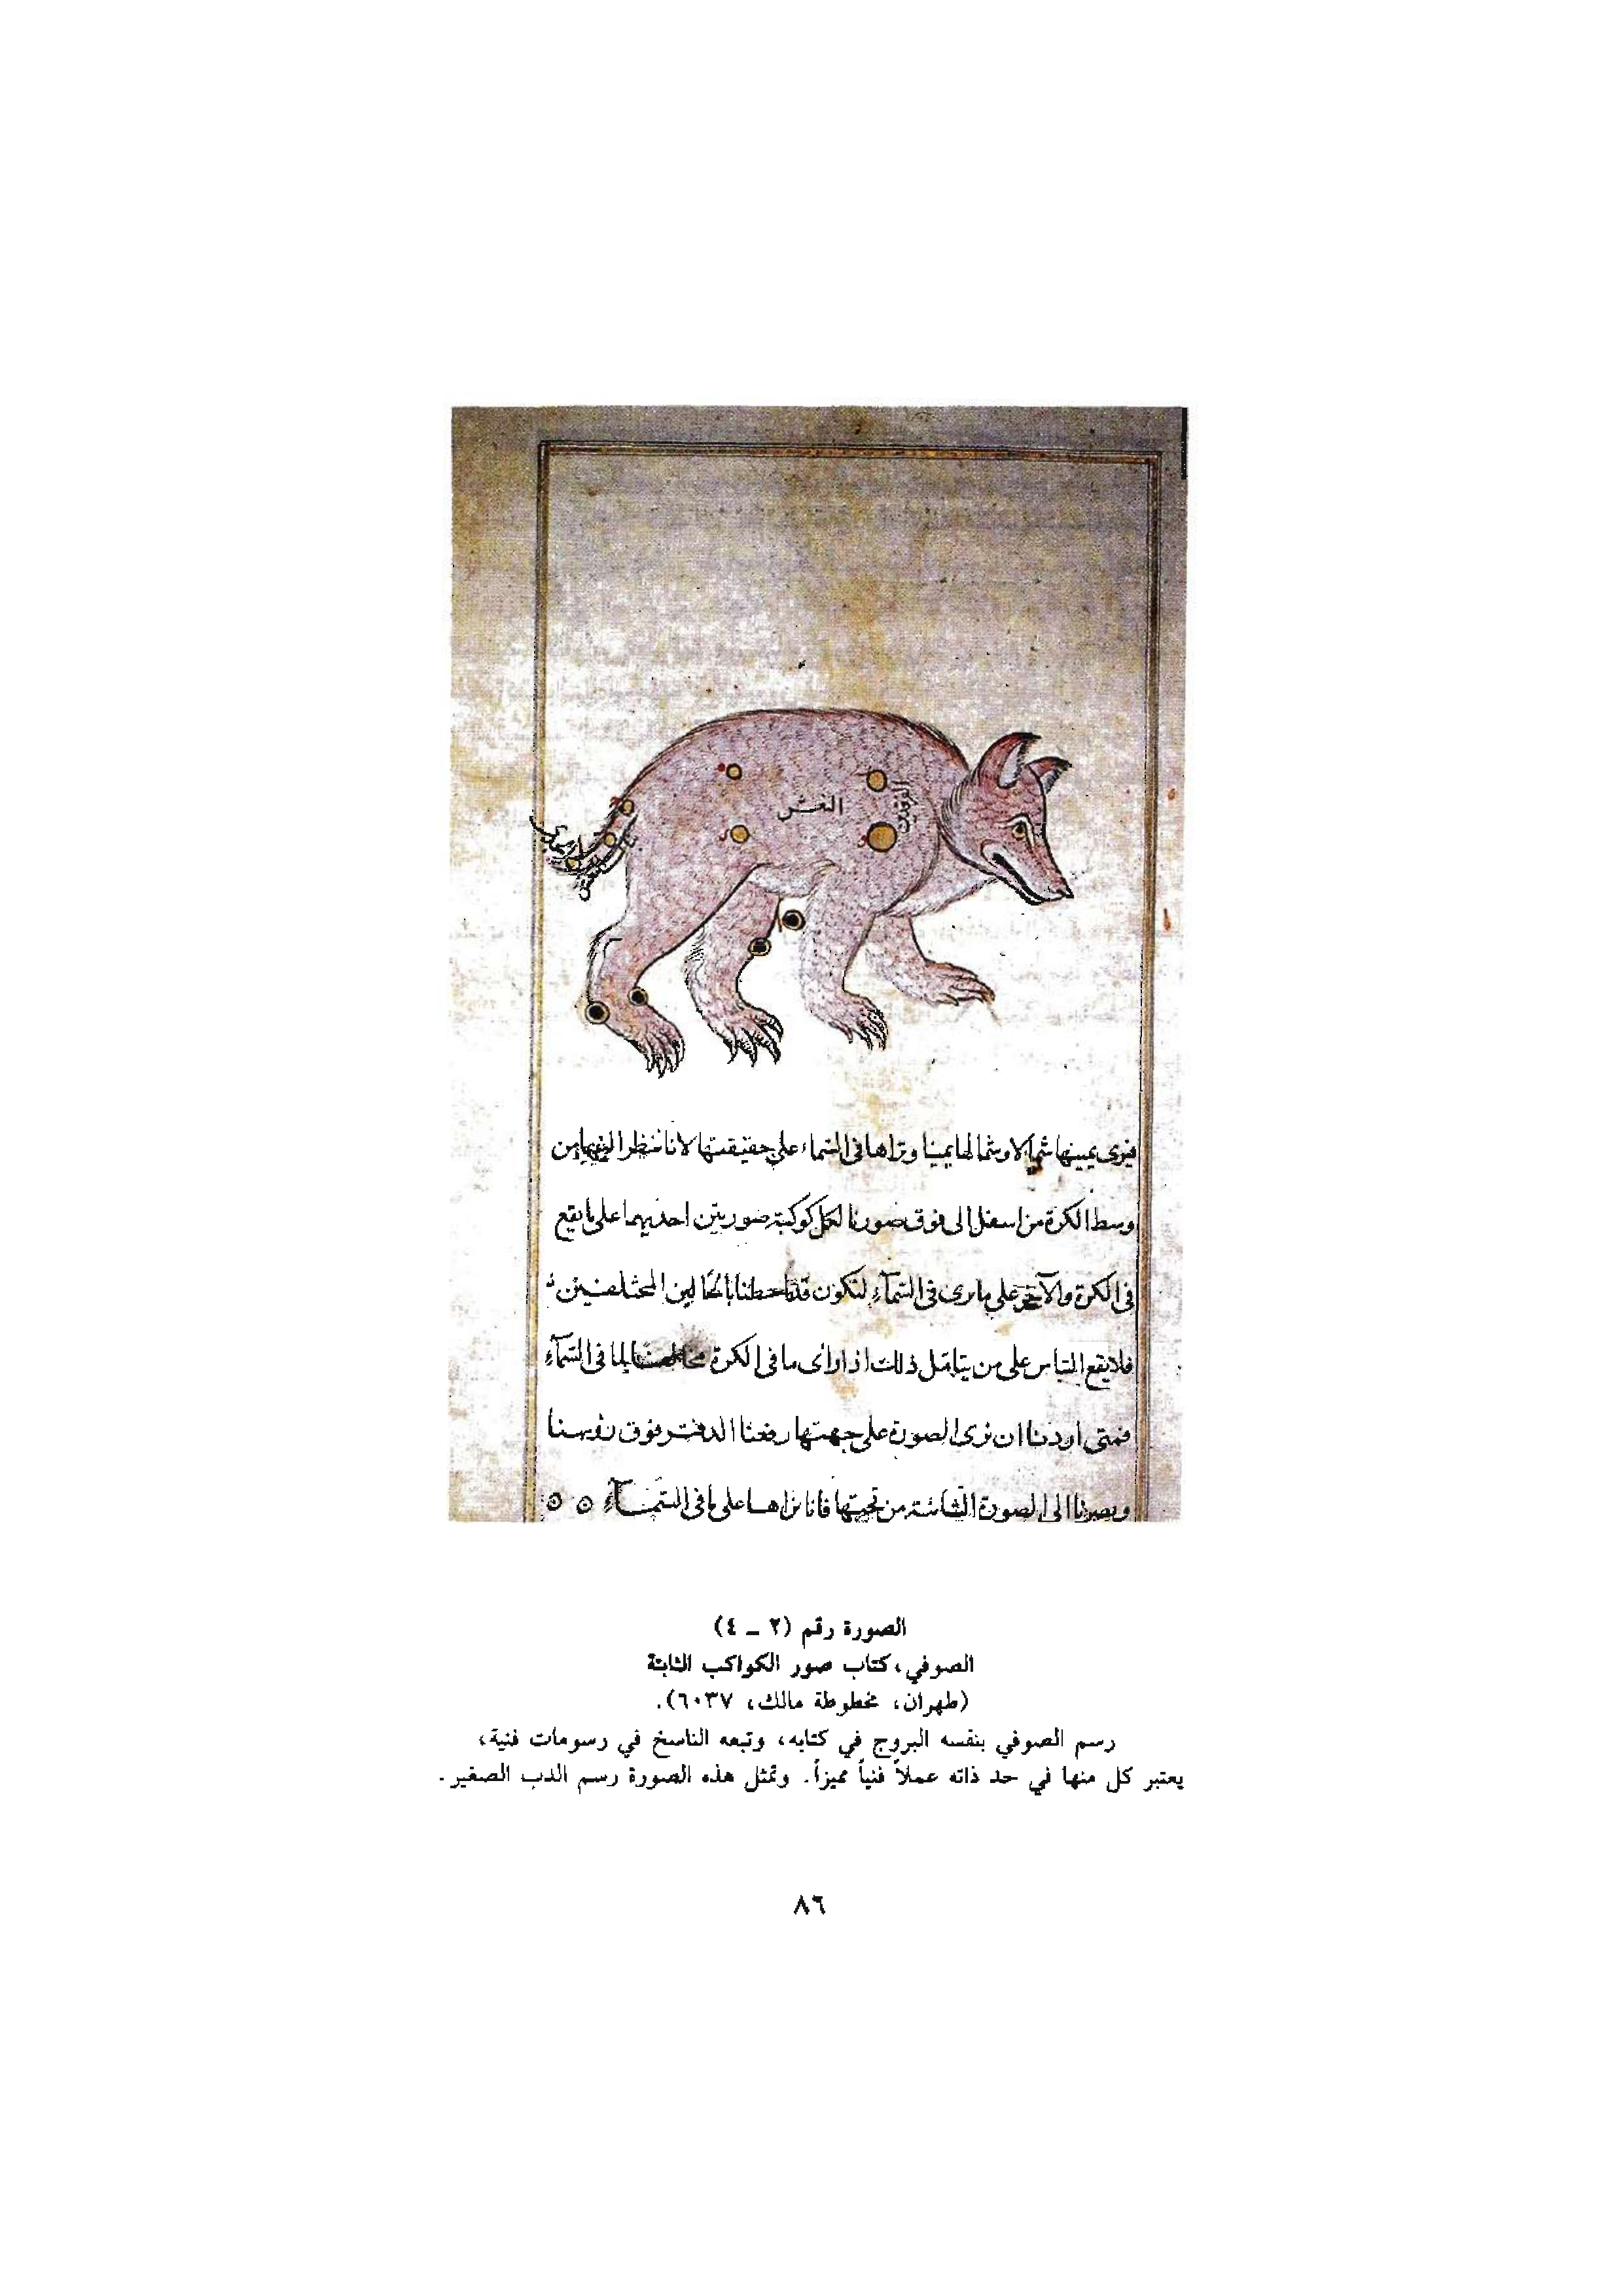 النعش
الفرقدين
فيرى يمينها شمالا وشمالها يمينا ونراها في السماء على حقيقتها لانا ننظر اليها من
وسط الكرة من اسفل الى فوق صورنا لكل كوكبة صورتين احديهما على ما يقع
في الكرة والآخر على ما يرى في السمآء لتكون قد احطنا بالحالين المختلفين
فلا يقع التباس على من يتامل ذلك اذا رأى ما في الكرة مخالفا لما في السمآء
فمتى اردنا ان نرى الصورة على جهتها رفعنا الدفتر فوق رؤسنا
وبصرنا الى الصورة الثانية من تحتها فانا نراها على ما في السمآء
الصورة رقم (٢ - ٤)
الصوفي، كتاب صور الكواكب الثابتة
(طهران، مخطوطة مالك، ٦٠٣٧).
رسم الصوفي بنفسه البروج في كتابه، وتبعه الناسخ في رسومات فنية،
يعتبر كل منها في حد ذاته عملاً فنياً مميزاً. وتمثل هذه الصورة رسم الدب الصغير.
٨٦